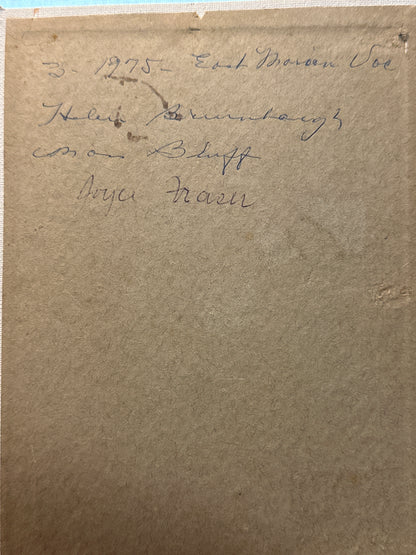 3-1975- East Moran Voc
Helen Brumbaugh
Bluff
Joyce Fraser